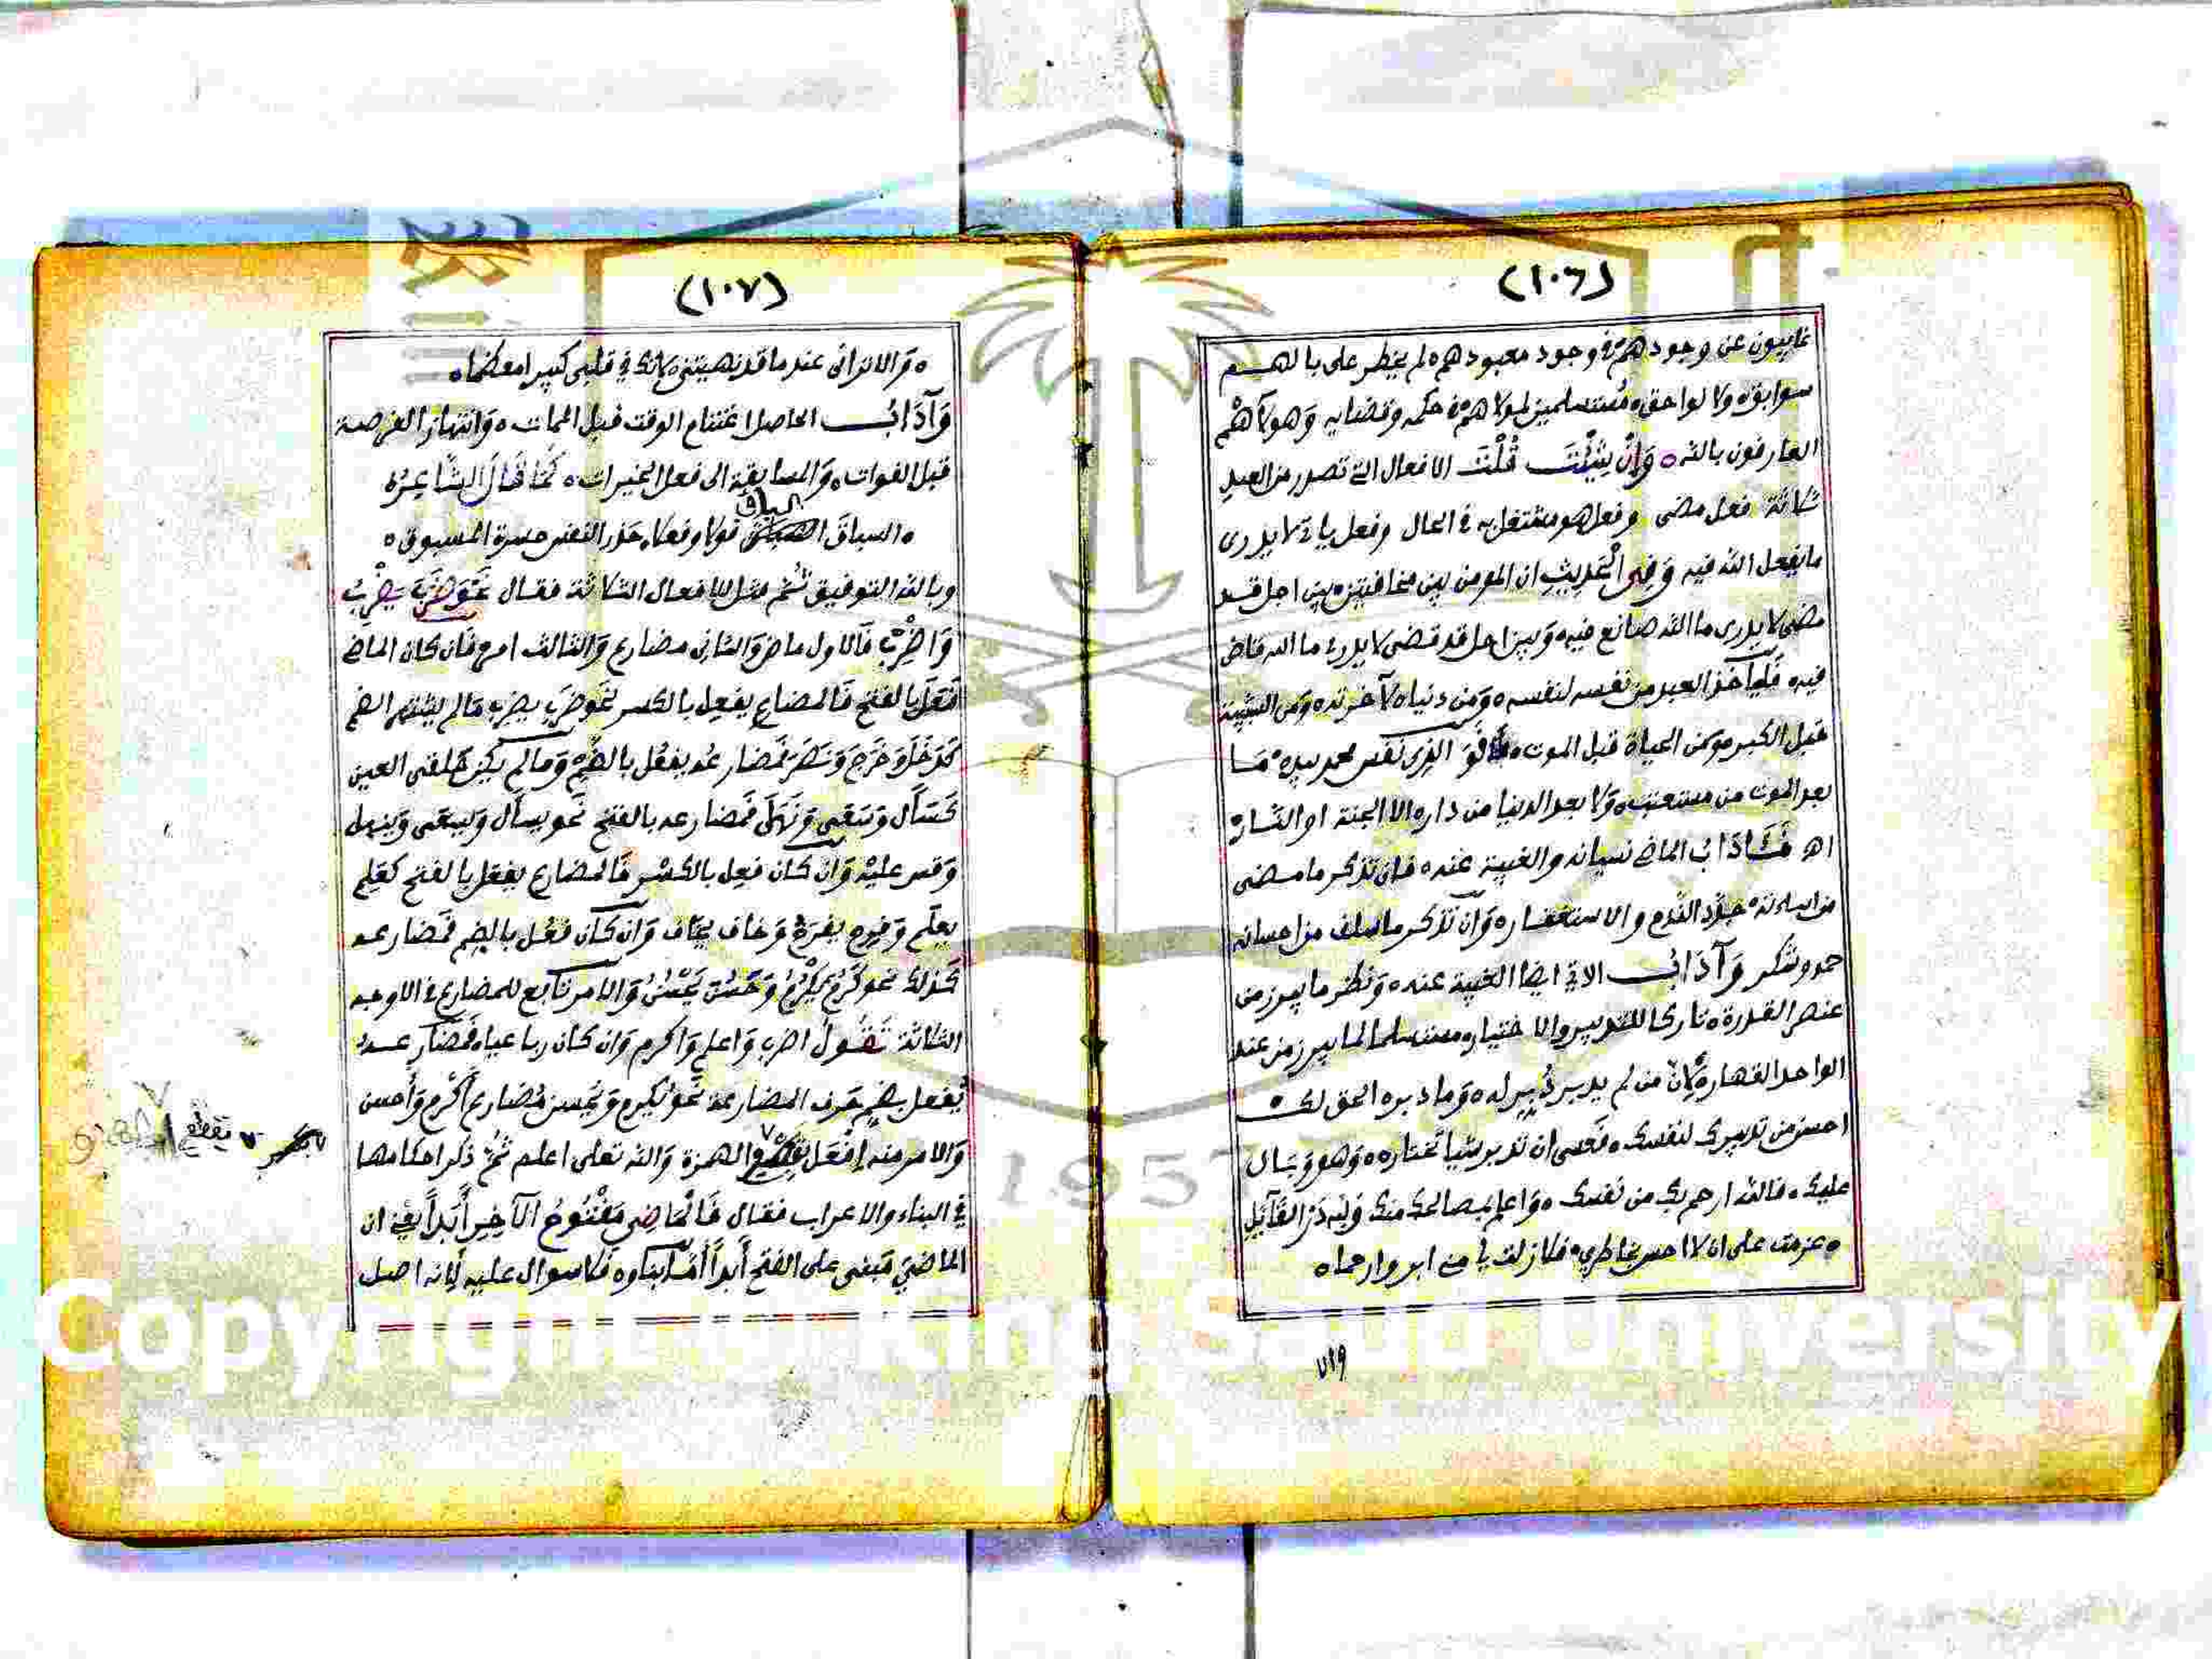 (١٠٦)
غايبون عن وجودهم في وجود معبودهم ه لم يخطر على بالهم
سوابق ه ولا لواحق ه مستسلمين لمولاهم في حكمه وقضايه وهولآهم
العارفون بالله ه وان شئت قلت الافعال التي تصدر من العبد
ثلاثة فعل مضى وفعل هو مشتغل به في الحال وفعل ياتي لا يدرى
ما يفعل الله فيه وفي الحديث ان المومن بين مخافتين ه بين اجل قد
مضى لا يدرى ما الله صانع فيه ه وبين اجل قد قضى لا يدرى ما الله قاض
فيه ه فليأخذ العبد من نفسه لنفسه ه ومن دنياه لآخرته ه ومن الشبيبة
قبل الكبر ه ومن الحياة قبل الموت ه فو الذى نفس محمد بيده ما
بعد الموت من مستعتب ه ولا بعد الدنيا من دار ه الا الجنة او النار ه
اهـ فـآداب الماضي نسيانه والغيبة عنه ه فان تذكر ما مضى
من اساءته ه جدد الندم والاستغفار ه وان تذكر ما سلف من احسانه
حمد وشكر وآداب الاتي ايضا الغيبة عنه ه ونظر ما يبرز من
عنصر القدرة ه تاركا للتدبير والاختيار ه مستسلما لما يبرز من عند
الواحد القهار ه لان من لم يدبر دُبر له ه وما دبره الحق لك ه
احسن من تدبيرك لنفسك ه فعسى ان تدبر شيا تختاره ه وهو وبال
عليك ه فالله ارحم بك من نفسك ه واعلم بمصالحك منك ولله در القآيل
ه عزمت على ان لا احس بخاطرى ه فلا زلت بي مني ابر وارحما ه
(١٠٧)
ه والا تراني عند ما قد نهيتني ه لانك في قلبي كبيرا معظما ه
وآداب الحاصل اغتنام الوقت قبل الممات ه وانتهاز الفرصة
قبل الفوات ه والمسابقة الى فعل الخيرات ه كما قال الشاعر ه
السباق
ه السباق قولا وفعلا ه حذر النفس حسرة المسبوق ه
وبالله التوفيق ثم مثل للافعال الثلاثة فقال نحو ضرب يضرب
واضرب فالاول ماض والثاني مضارع والثالث امر فان كان الماضي
فعل بالفتح فالمضارع يفعل بالكسر نحو ضرب يضرب ما لم يشتهر الضم
كدخل وخرج ونصر فمضارعه يفعل بالضم وما لم يكن حلقي العين
كسأل وسعى ونهل فمضارعه بالفتح نحو يسأل ويسعى وينهل
وقس عليه وان كان فعل بالكسر فالمضارع يفعل بالفتح كعلم
يعلم وفرح يفرح وخاف يخاف وان كان فعل بالضم فمضارعه
كذلك نحو كرم يكرم وحسن يحسن والامر تابع للمضارع في الاوجه
الثلاثة تقول اضرب واعلم واكرم وان كان رباعيا ه فمضارعه
يفعل بضم حرف المضارعة نحو يكرم ويحسن مضارع أكرم وأحسن
والامر منه افعل الهمزة والله تعلى اعلم ثم ذكر احكامها
في البناء والاعراب فقال فالماضي مفتوح الآخر أبدا يعني ان
الماضي مبني على الفتح أبدا أما بناوه فلا سوال عليه لانه اصل